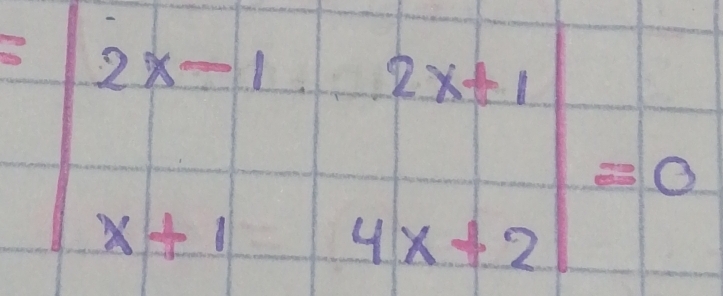 = | 2x-1 2x+1 |
| x+1 4x+2 | = 0